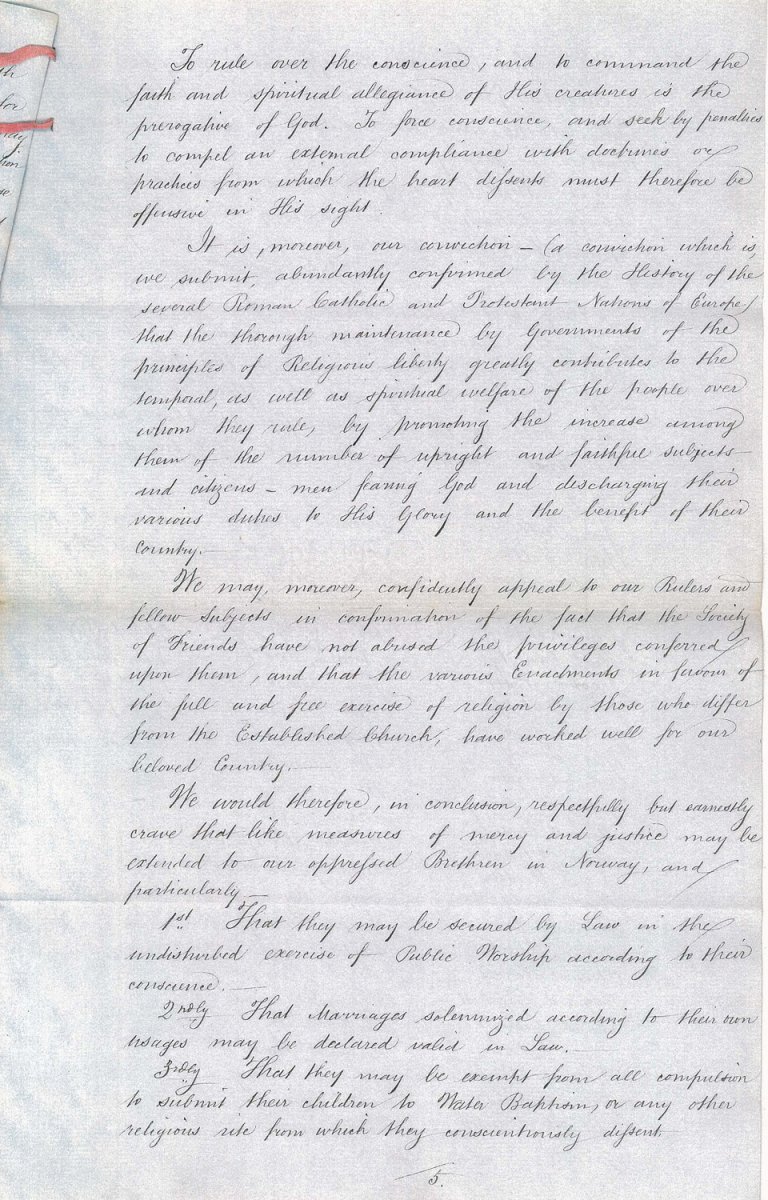 To rule over the conscience, and to command the
faith and spiritual allegiance of His creatures is the
prerogative of God. To force conscience, and seek by penalties
to compel an external compliance with doctrines or
practices from which the heart dissents must therefore be
offensive in His sight.
It is, moreover, our conviction – (a conviction which is,
we submit, abundantly confirmed by the History of the
several Roman Catholic and Protestant Nations of Europe)
that the thorough maintenance by Governments of the
principles of Religious liberty greatly contributes to the
temporal, as well as spiritual welfare of the people over
whom they rule, by promoting the increase among
them of the number of upright and faithful subjects
and citizens – men fearing God and discharging their
various duties to His Glory and the benefit of their
Country. —
We may, moreover, confidently appeal to our Rulers and
fellow Subjects in confirmation of the fact that the Society
of Friends have not abused the privileges conferred
upon them, and that the various Enactments in favour of
the full and free exercise of religion by those who differ
from the Established Church, have worked well for our
beloved Country. —
We would therefore, in conclusion, respectfully but earnestly
crave that like measures of mercy and justice may be
extended to our oppressed Brethren in Norway, and
particularly —
1st That they may be secured by Law in the
undisturbed exercise of Public Worship according to their
conscience. —
2ndly That Marriages solemnized according to their own
usages may be declared valid in Law. —
3rdly That they may be exempt from all compulsion
to submit their children to Water Baptism, or any other
religious rite from which they conscientiously dissent.
5.